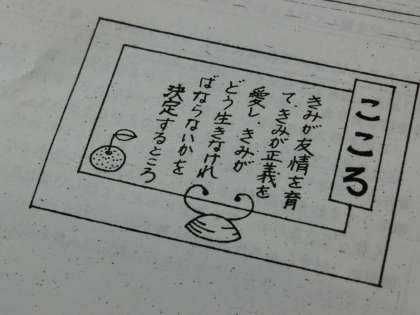 こころ
きみが友情を育
て、きみが正義を
愛し、きみが
どう生きなけれ
ばならないかを
決定するところ